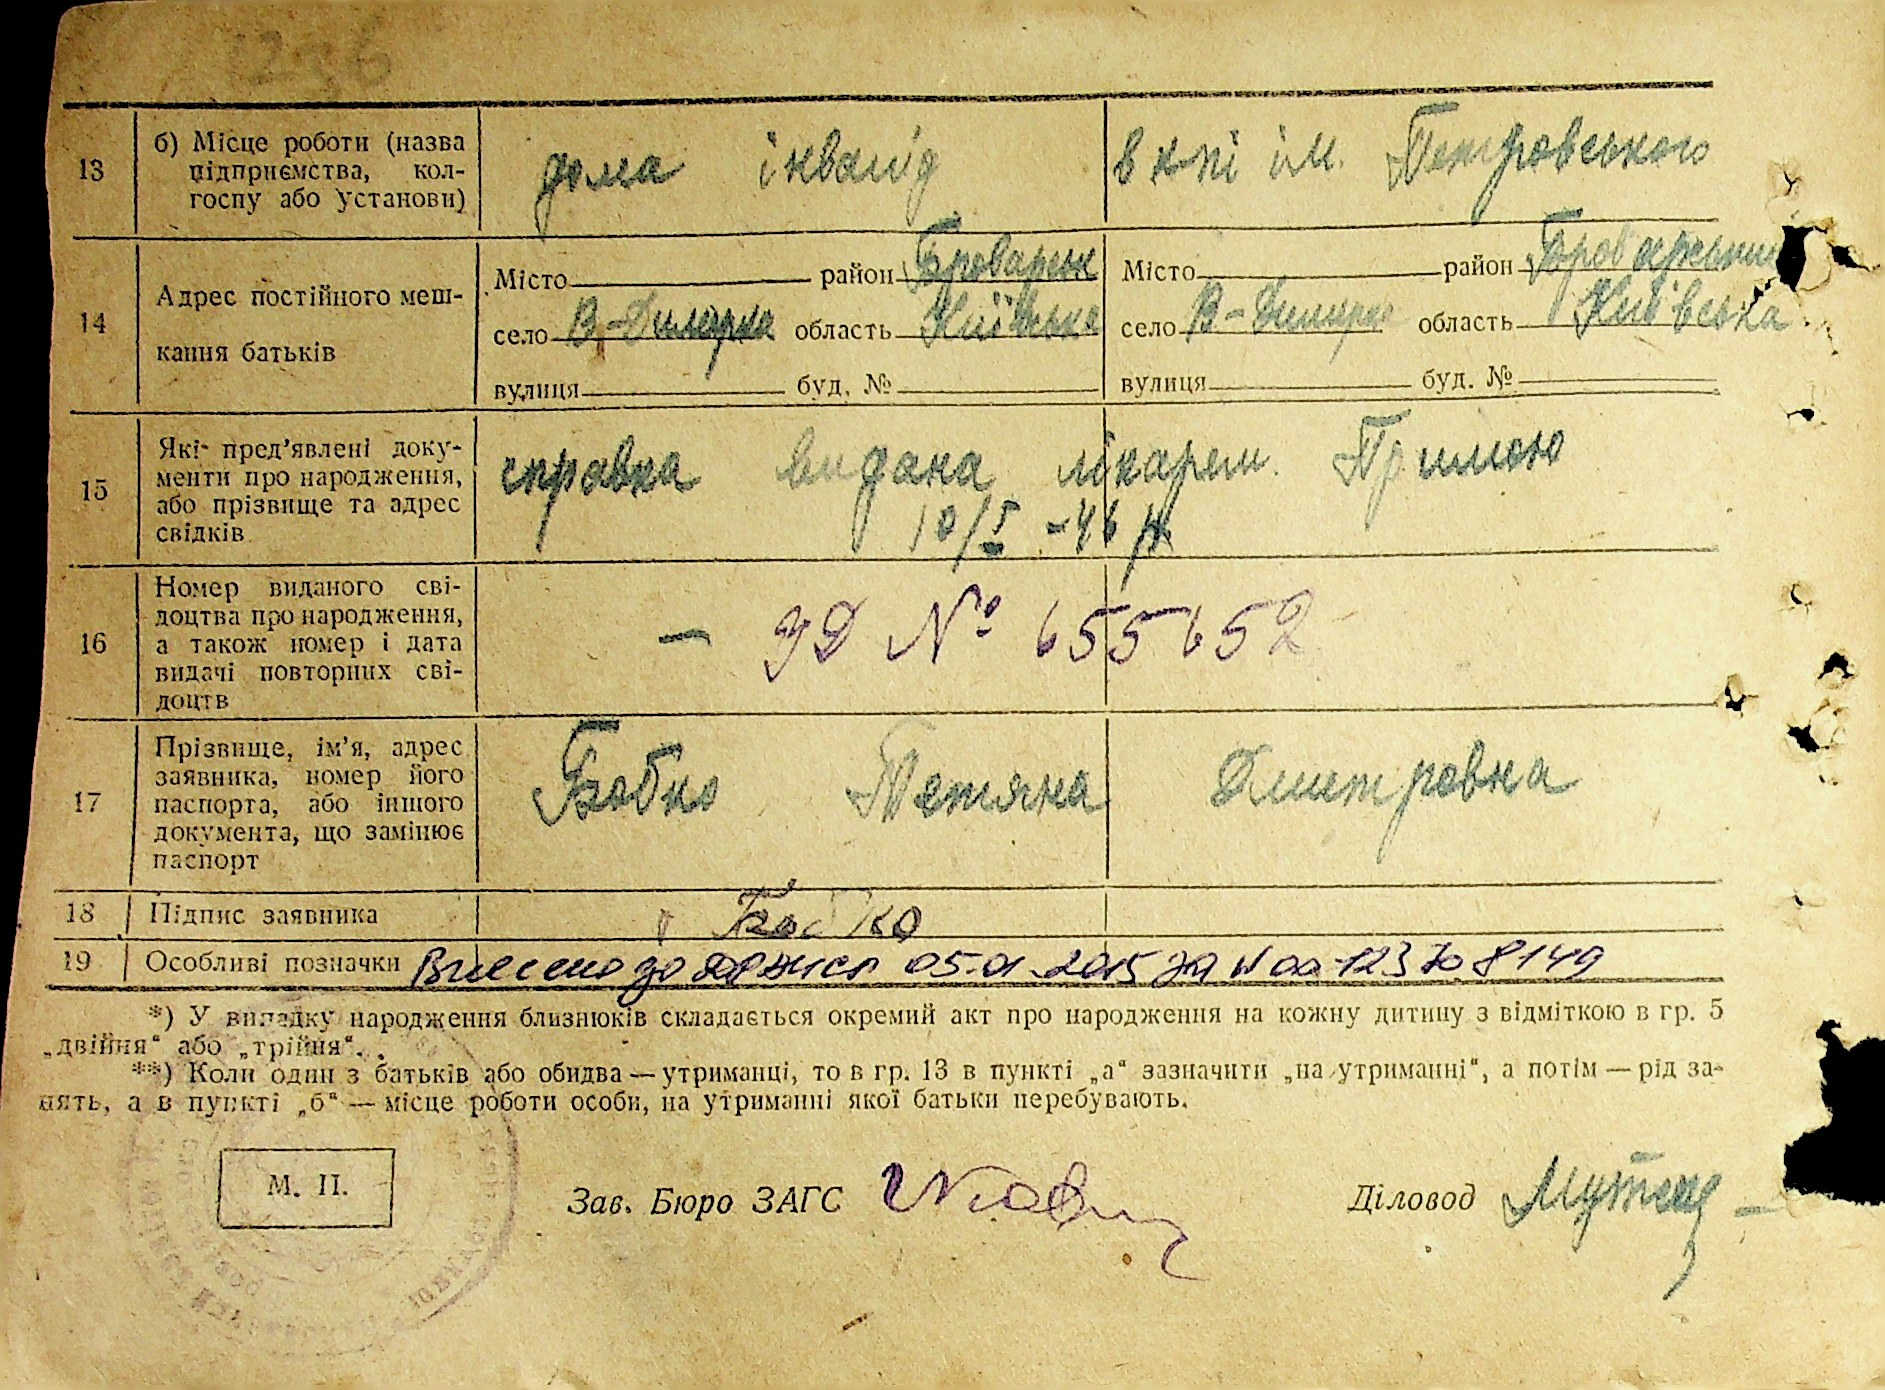 1296
13 б) Місце роботи (назва підприємства, колгоспу або установи) дома інвалід в к-пі ім. Петровського
14 Адрес постійного мешкання батьків
Місто район Броварськ Місто район Броварський
село В-Димерка область Київська село В-Димерка область Київська
вулиця буд. № вулиця буд. №
15 Які пред'явлені документи про народження, або прізвище та адрес свідків справка видана лікарем
10/I -46 р
16 Номер виданого свідоцтва про народження, а також номер і дата видачі повторних свідоцтв – УД № 655652
17 Прізвище, ім'я, адрес заявника, номер його паспорта, або іншого документа, що замінює паспорт Бобко Тетяна Дмитровна
18 Підпис заявника Бобко
19 Особливі позначки Внесено до 05.01.2015 за № 00123708149
*) У випадку народження близнюків складається окремий акт про народження на кожну дитину з відміткою в гр. 5
„двійня“ або „трійня“.
**) Коли один з батьків або обидва — утриманці, то в гр. 13 в пункті „а“ зазначити „на утриманні“, а потім — рід за-
нять, а в пункті „б“ — місце роботи особи, на утриманні якої батьки перебувають.
М. П. Зав. Бюро ЗАГС Діловод